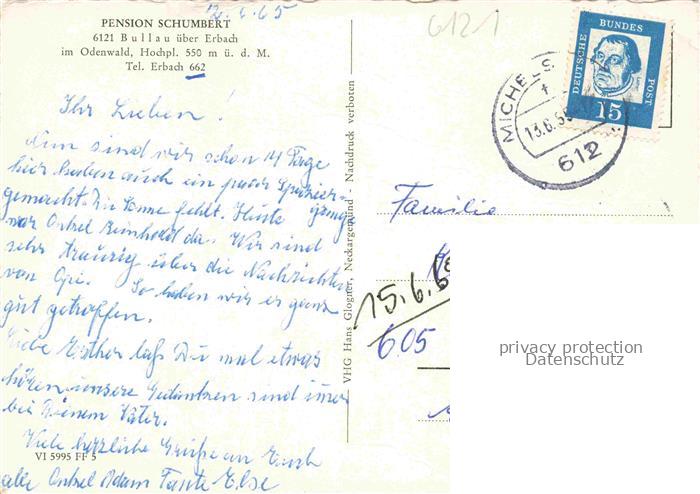 2.6.65
PENSION SCHUMBERT
6121 Bullau über Erbach
im Odenwald, Hochpl. 550 m ü. d. M.
Tel. Erbach 662
Ihr Lieben!
Nun sind wir schon 14 Tage
hier haben auch ein paar Spazier-
gänge
gemacht. Die Sonne fehlt. Heute
war Onkel Reinhold da. Wir sind
sehr traurig über die Nachrichten
von Opi. So haben wir es ganz
gut getroffen.
Liebe Esther laß Du mal etwas
hören unsere Gedanken sind immer
bei Deinem Vater.
Viele herzliche Grüße an Euch
alle Onkel Adam Tante Else
VI 5995 FF 5
VHG Hans Glogner, Neckargemünd - Nachdruck verboten
6121
MICHELS
13.6.65
612
DEUTSCHE BUNDES POST
15
Familie
15.6.6
605
privacy protection
Datenschutz